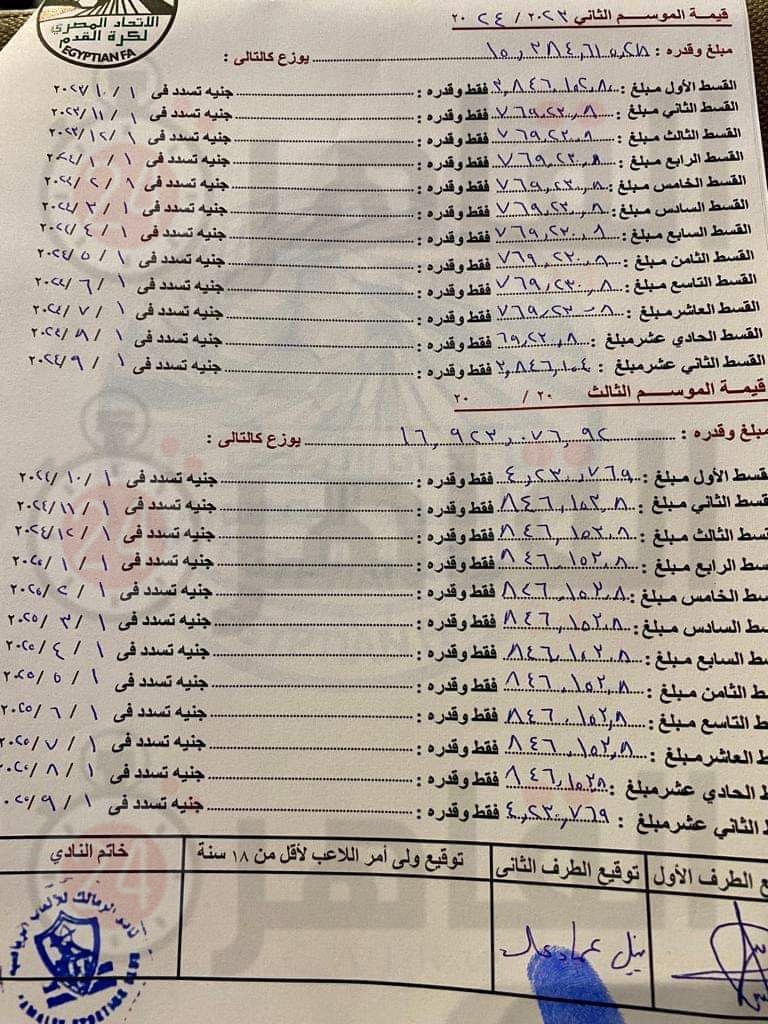 الاتحاد المصري
لكرة القدم
EGYPTIAN FA
قيمة الموسم الثاني ٢٠٢٣ / ٢٠٢٤
مبلغ وقدره : ١٥,٣٨٤,٦١٥,٢٨ يوزع كالتالى :
القسط الأول مبلغ : ٣,٨٤٦,١٥٢,٨٠ فقط وقدره : جنيه تسدد فى ١ / ١٠ / ٢٠٢٣
القسط الثاني مبلغ : ٧٦٩,٢٣٠,٨ فقط وقدره : جنيه تسدد فى ١ / ١١ / ٢٠٢٣
القسط الثالث مبلغ : ٧٦٩,٢٣٠,٨ فقط وقدره : جنيه تسدد فى ١ / ١٢ / ٢٠٢٣
القسط الرابع مبلغ : ٧٦٩,٢٣٠,٨ فقط وقدره : جنيه تسدد فى ١ / ١ / ٢٠٢٤
القسط الخامس مبلغ : ٧٦٩,٢٣٠,٨ فقط وقدره : جنيه تسدد فى ١ / ٢ / ٢٠٢٤
القسط السادس مبلغ : ٧٦٩,٢٣٠,٨ فقط وقدره : جنيه تسدد فى ١ / ٣ / ٢٠٢٤
القسط السابع مبلغ : ٧٦٩,٢٣٠,٨ فقط وقدره : جنيه تسدد فى ١ / ٤ / ٢٠٢٤
القسط الثامن مبلغ : ٧٦٩,٢٣٠,٨ فقط وقدره : جنيه تسدد فى ١ / ٥ / ٢٠٢٤
القسط التاسع مبلغ : ٧٦٩,٢٣٠,٨ فقط وقدره : جنيه تسدد فى ١ / ٦ / ٢٠٢٤
القسط العاشر مبلغ : ٧٦٩,٢٣٠,٨ فقط وقدره : جنيه تسدد فى ١ / ٧ / ٢٠٢٤
القسط الحادي عشر مبلغ : ٦٩,٢٣٠,٨ فقط وقدره : جنيه تسدد فى ١ / ٨ / ٢٠٢٤
القسط الثاني عشر مبلغ : ٣,٨٤٦,١٥٤ فقط وقدره : جنيه تسدد فى ١ / ٩ / ٢٠٢٤
قيمة الموسم الثالث ٢٠ / ٢٠
مبلغ وقدره : ١٦,٩٢٣,٠٧٦,٩٢ يوزع كالتالى :
قسط الأول مبلغ : ٤,٢٣٠,٧٦٩ فقط وقدره : جنيه تسدد فى ١ / ١٠ / ٢٠٢٤
قسط الثاني مبلغ : ٨٤٦,١٥٣,٨ فقط وقدره : جنيه تسدد فى ١ / ١١ / ٢٠٢٤
قسط الثالث مبلغ : ٨٤٦,١٥٣,٨ فقط وقدره : جنيه تسدد فى ١ / ١٢ / ٢٠٢٤
سط الرابع مبلغ : ٨٤٦,١٥٣,٨ فقط وقدره : جنيه تسدد فى ١ / ١ / ٢٠٢٥
سط الخامس مبلغ : ٨٤٦,١٥٣,٨ فقط وقدره : جنيه تسدد فى ١ / ٢ / ٢٠٢٥
سط السادس مبلغ : ٨٤٦,١٥٣,٨ فقط وقدره : جنيه تسدد فى ١ / ٣ / ٢٠٢٥
سط السابع مبلغ : ٨٤٦,١٥٣,٨ فقط وقدره : جنيه تسدد فى ١ / ٤ / ٢٠٢٥
ط الثامن مبلغ : ٨٤٦,١٥٣,٨ فقط وقدره : جنيه تسدد فى ١ / ٥ / ٢٠٢٥
ط التاسع مبلغ : ٨٤٦,١٥٣,٨ فقط وقدره : جنيه تسدد فى ١ / ٦ / ٢٠٢٥
ط العاشر مبلغ : ٨٤٦,١٥٣,٨ فقط وقدره : جنيه تسدد فى ١ / ٧ / ٢٠٢٥
ط الحادي عشر مبلغ : ٨٤٦,١٥٣٨ فقط وقدره : جنيه تسدد فى ١ / ٨ / ٢٠٢٥
ط الثاني عشر مبلغ : ٤,٢٣٠,٧٦٩ فقط وقدره : جنيه تسدد فى ١ / ٩ / ٢٠٢٥
ع الطرف الأول توقيع الطرف الثانى توقيع ولى أمر اللاعب لأقل من ١٨ سنة خاتم النادي
نبيل عماد
نادي الزمالك للألعاب الرياضية